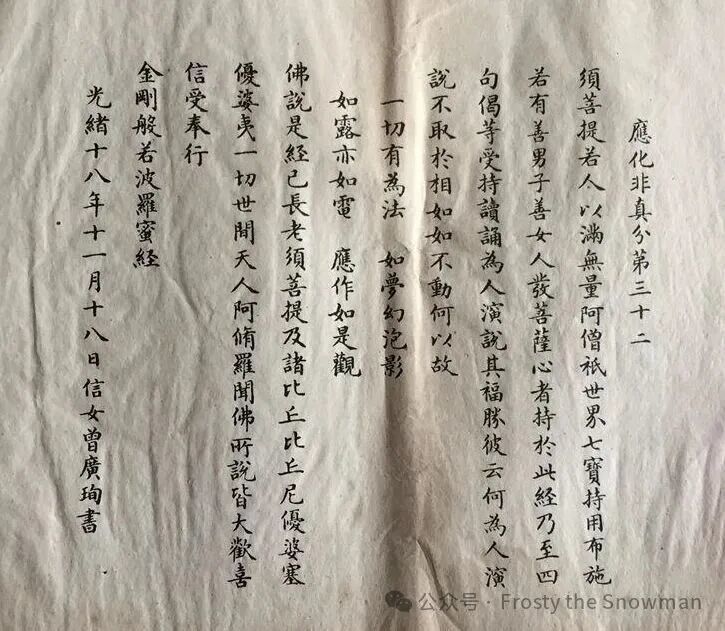 應化非真分第三十二
須菩提若人以滿無量阿僧祇世界七寶持用布施
若有善男子善女人發菩薩心者持於此経乃至四
句偈等受持讀誦為人演說其福勝彼云何為人演
說不取於相如如不動何以故
一切有為法　如夢幻泡影
如露亦如電　應作如是觀
佛說是経已長老須菩提及諸比丘比丘尼優婆塞
優婆夷一切世間天人阿脩羅聞佛所說皆大歡喜
信受奉行
金剛般若波羅蜜経
光緒十八年十一月十八日信女曾廣珣書
公众号 · Frosty the Snowman